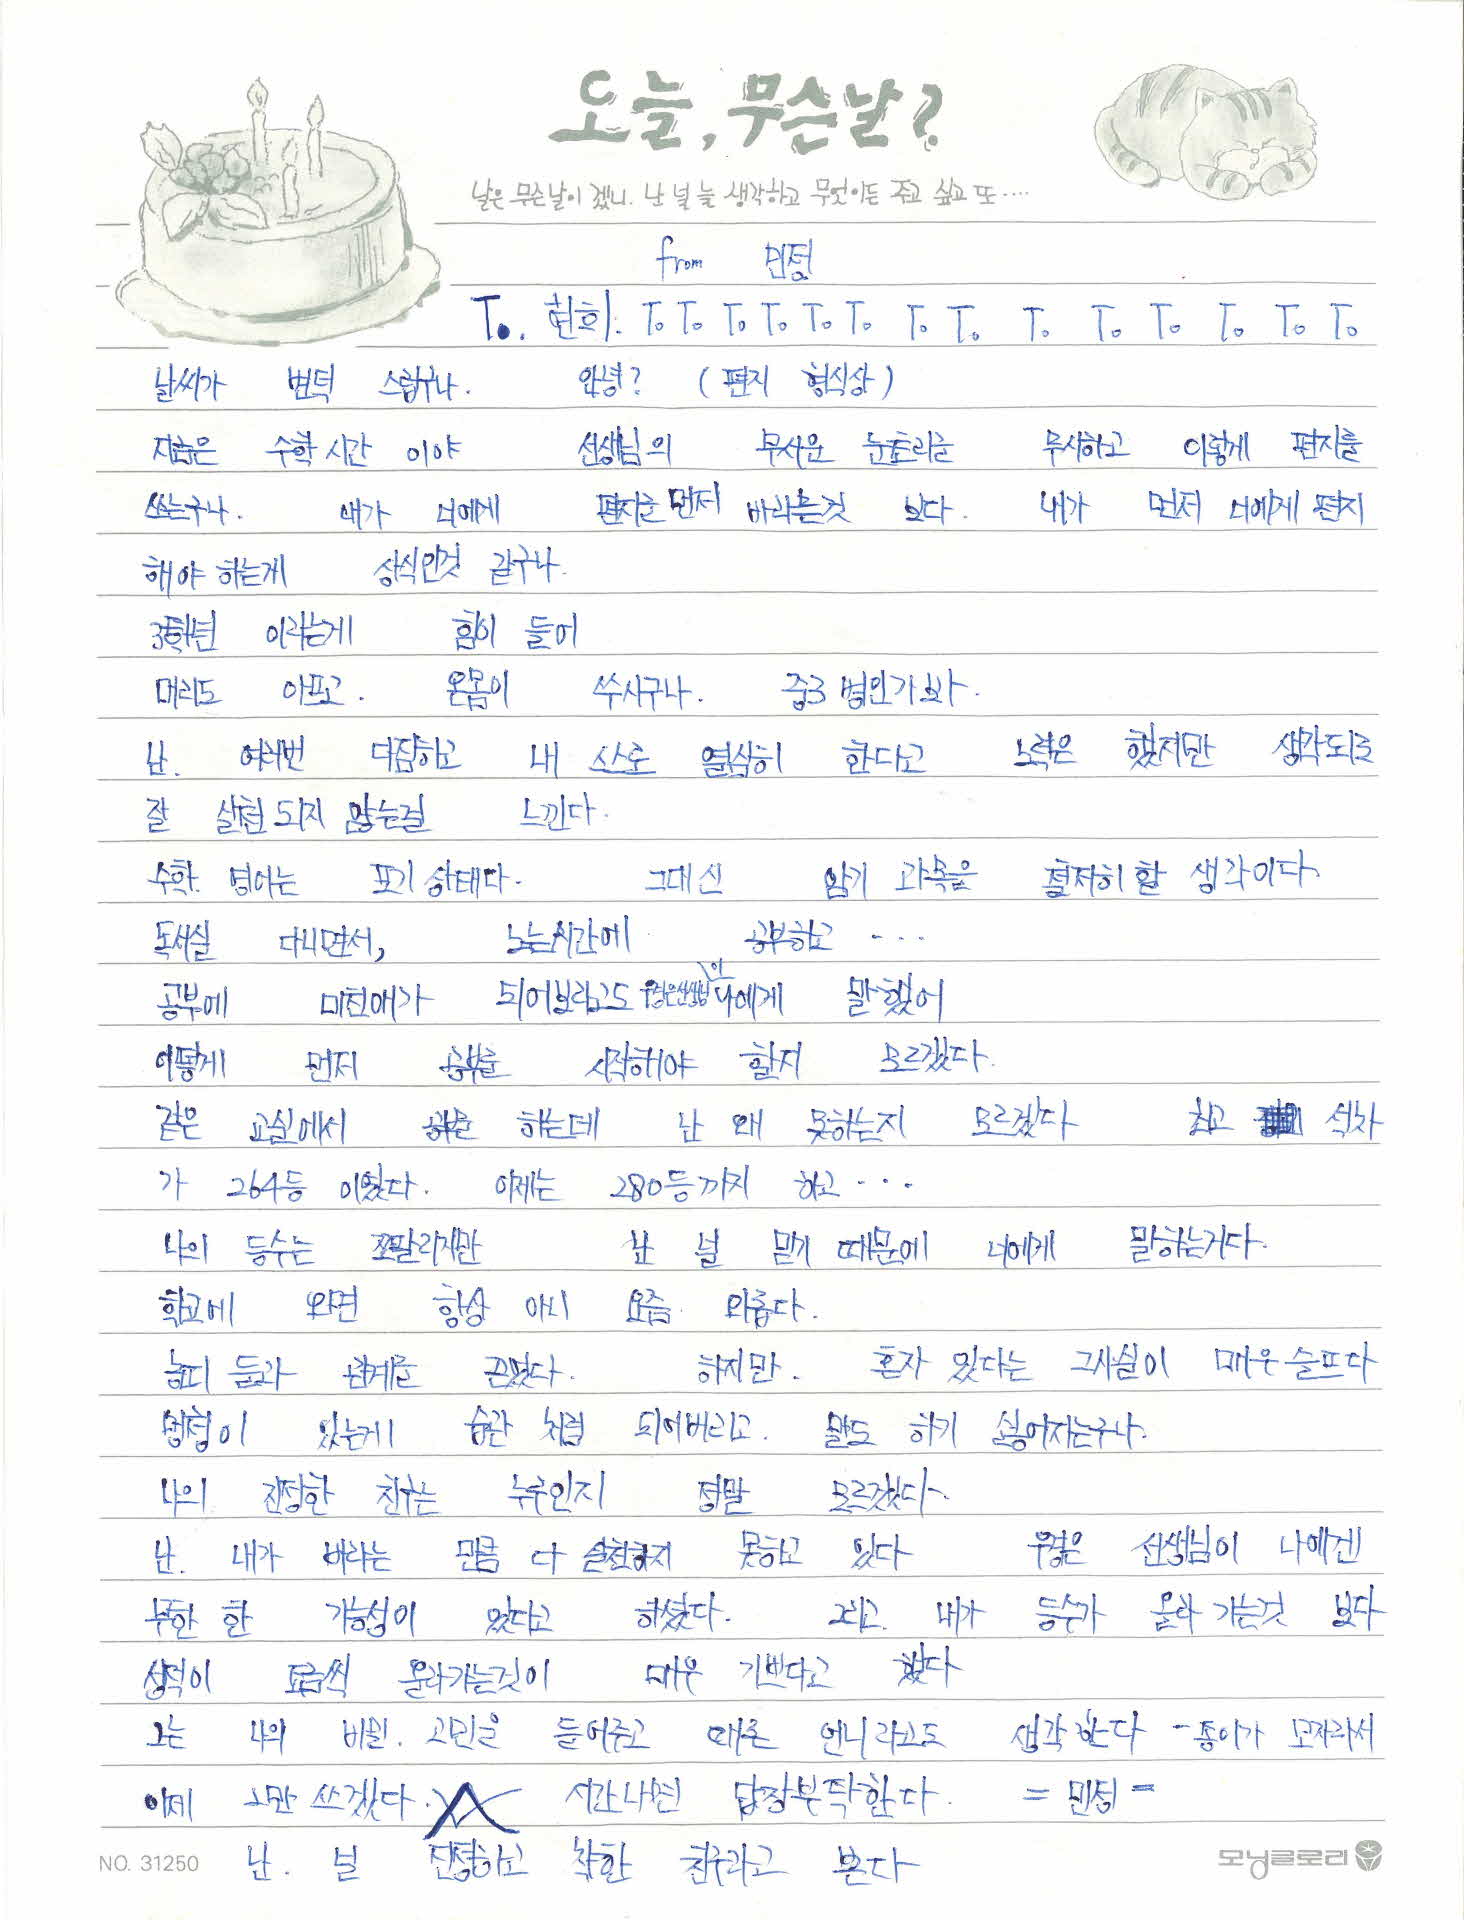 오늘, 무슨날?
날은 무슨날이겠니. 난 널 늘 생각하고 무엇이든 주고 싶고 또....
from 민정
To. 현희. To To To To To To To To To To To To To To
날씨가 변덕 스럽구나. 안녕? (편지 형식상)
지금은 수학시간 이야 선생님의 무서운 눈초리를 무시하고 이렇게 편지를
쓰는구나. 내가 너에게 편지를 먼저 바라는것 보다. 내가 먼저 너에게 편지
해야 하는게 상식인것 같구나.
3학년 이라는게 힘이 들어
머리도 아프고. 온몸이 쑤시구나. 중3 병인가봐.
난. 여러번 다짐하고 내 스스로 열심히 한다고 노력은 했지만 생각되로
잘 실현되지 않는걸 느낀다.
수학. 영어는 포기상태다. 그대신 암기 과목을 철저히 할 생각이다.
독서실 다니면서, 노는시간에 공부하고 ...
공부에 미친애가 되어보라고도 선생님이 나에게 말했어
어떻게 먼저 공부를 시작해야 할지 모르겠다.
같은 교실에서 하는데 난 왜 못하는지 모르겠다 최고 석차
가 264등 이였다. 이제는 280등까지 하고...
나의 등수는 쪼팔리지만 난 널 믿기 때문에 너에게 말하는거다.
학교에 오면 항상 아니 요즘. 외롭다.
놀던 들과 관계를 끈었다. 하지만. 혼자 있다는 그사실이 매우 슬프다
멍청이 있는게 습관 처럼 되어버리고. 말도 하기 싫어지는구나.
나의 진정한 친구는 누구인지 정말 모르겠다.
난. 내가 바라는 만큼 다 실천하지 못하고 있다 선생님이 나에겐
무한 한 가능성이 있다고 하셨다. 그리고. 내가 등수가 올라 가는것 보다
성적이 조금씩 올라가는것이 매우 기쁘다고 했다
그는 나의 비밀. 고민을 들어주고 때론 언니라고도 생각한다 - 종이가 모자라서
이제 그만 쓰겠다. 시간나면 답장부탁한다. = 민정 =
난. 널 진정하고 착한 친구라고 본다
NO. 31250 모닝글로리